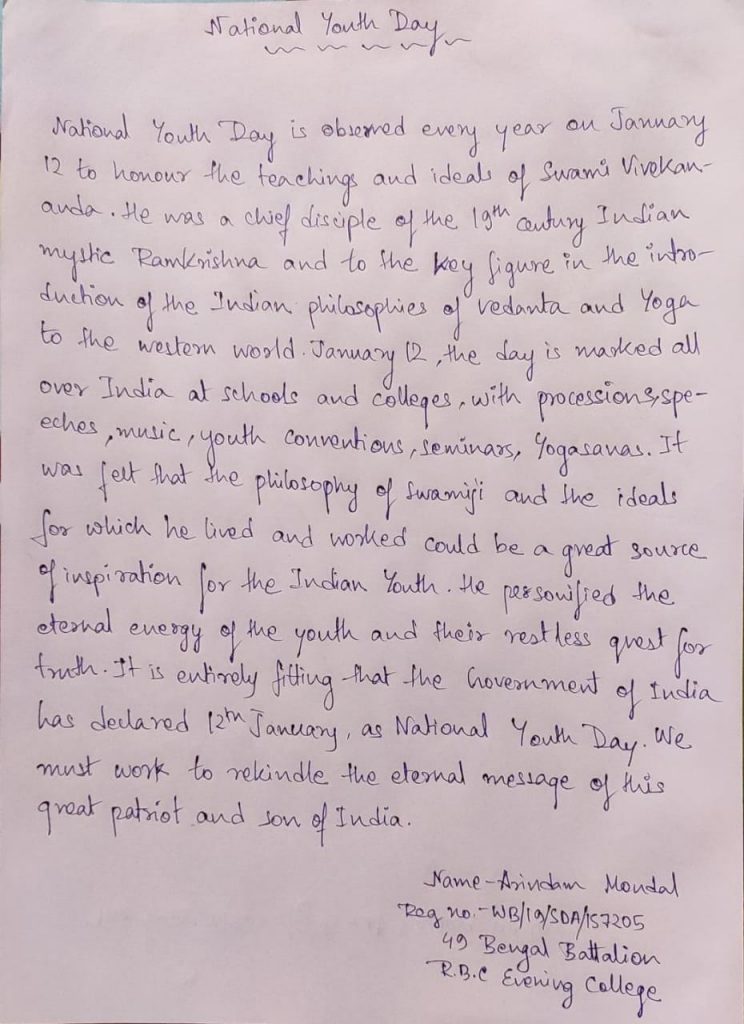 National Youth Day
National Youth Day is observed every year on January
12 to honour the teachings and ideals of Swami Vivekan-
anda. He was a chief disciple of the 19th century Indian
mystic Ramkrishna and to the key figure in the intro-
duction of the Indian philosophies of vedanta and Yoga
to the western world. January 12, the day is marked all
over India at schools and colleges, with processions, spe-
eches, music, youth conventions, seminars, Yogasanas. It
was felt that the philosophy of Swamiji and the ideals
for which he lived and worked could be a great source
of inspiration for the Indian Youth. He personified the
eternal energy of the youth and their restless quest for
truth. It is entirely fitting that the Government of India
has declared 12th January, as National Youth Day. We
must work to rekindle the eternal message of this
great patriot and son of India.
Name-Arindam Mondal
Reg no.-WB/19/SDA/157205
49 Bengal Battalion
R.B.C Evening College